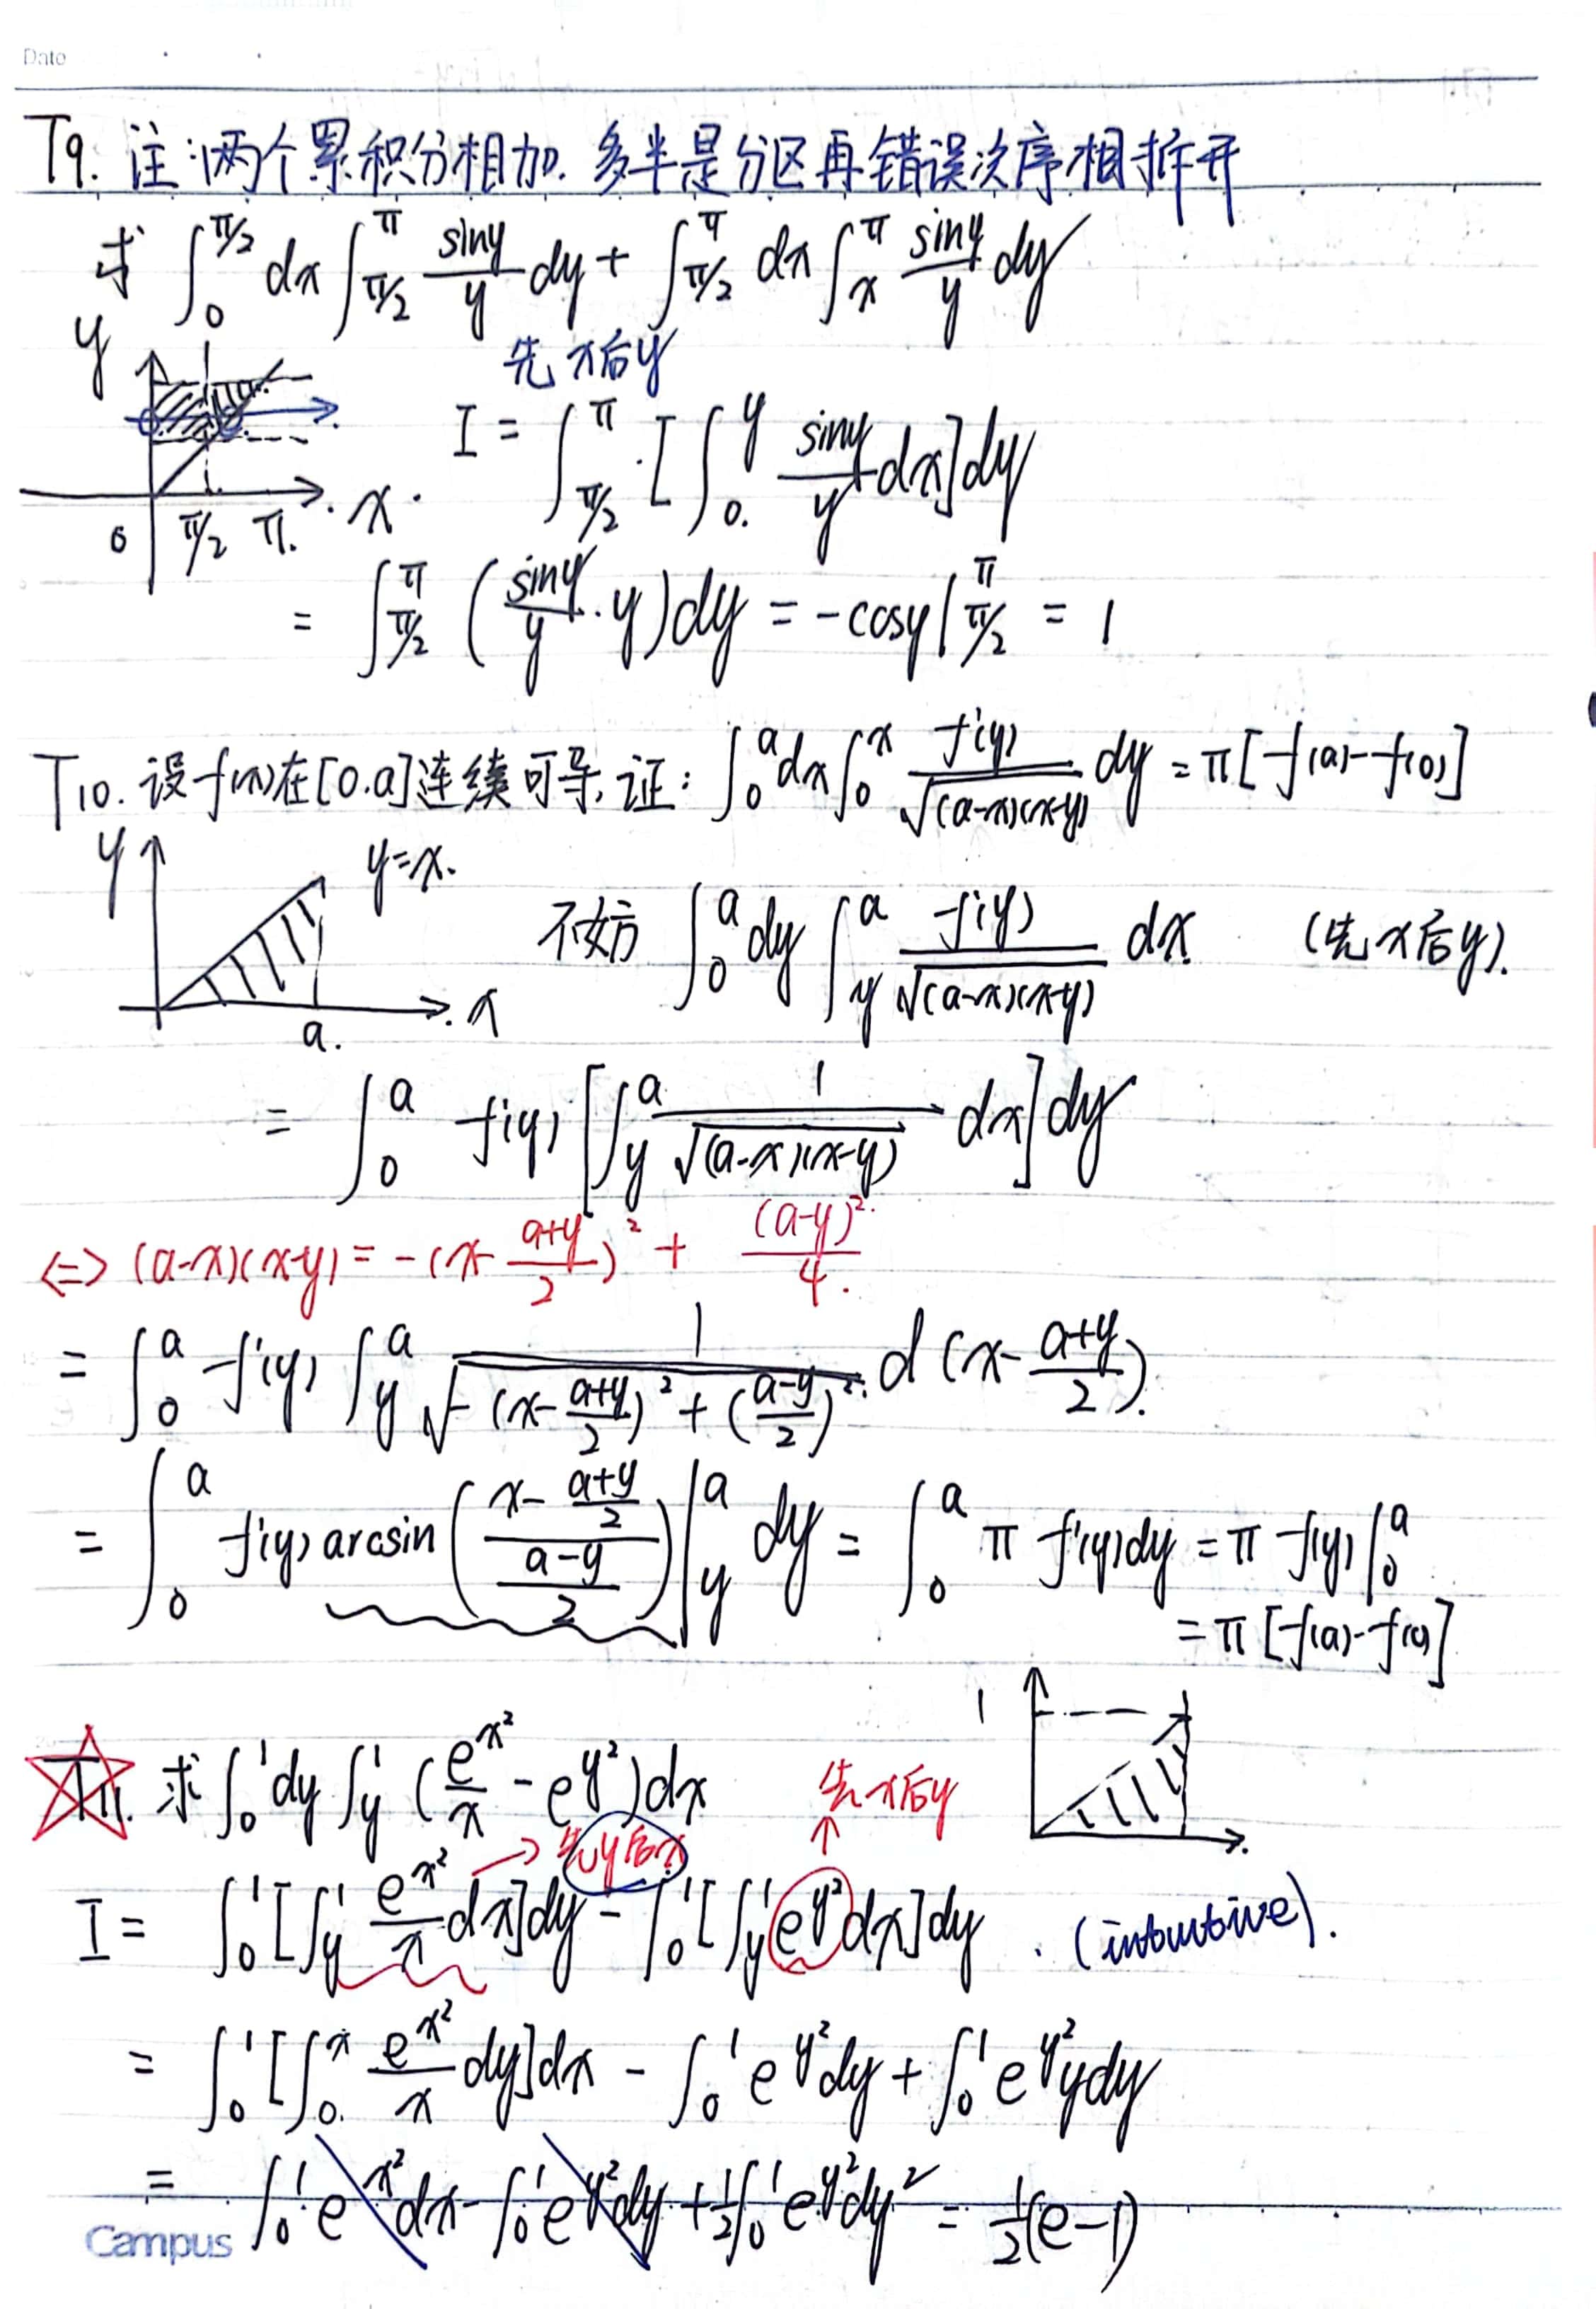 Date
T9. 注:两个累积分相加.多半是分区再错误次序相拆开
求 ∫₀^{π/2} dx ∫_{π/2}^{π} \frac{siny}{y} dy + ∫_{π/2}^{π} dx ∫_x^{π} \frac{siny}{y} dy
y
先x后y
I = ∫_{π/2}^{π} [∫_{0.}^{y} \frac{siny}{y} dx] dy
0 π/2 π. x.
= ∫_{π/2}^{π} (\frac{siny}{y}·y) dy = -cosy |_{π/2}^{π} = 1
T10. 设f(x)在[0.a]连续可导,证: ∫₀^a dx ∫₀^x \frac{f'(y)}{√((a-x)(x-y))} dy = π[f(a)-f(0)]
y y=x.
不妨 ∫₀^a dy ∫_y^a \frac{f'(y)}{√((a-x)(x-y))} dx (先x后y).
a. x
= ∫₀^a f'(y) [∫_y^a \frac{1}{√((a-x)(x-y))} dx] dy
<=> (a-x)(x-y) = -(x-\frac{a+y}{2})² + \frac{(a-y)²}{4.}
= ∫₀^a f'(y) ∫_y^a \frac{1}{√(-(x-\frac{a+y}{2})² + (\frac{a-y}{2})²)} d(x-\frac{a+y}{2}).
= ∫₀^a f'(y) arcsin(\frac{x-\frac{a+y}{2}}{\frac{a-y}{2}}) |_y^a dy = ∫₀^a π f'(y)dy = π f(y) |₀^a
= π[f(a)-f(0)]
1
T11. 求 ∫₀¹ dy ∫_y¹ (\frac{e^{x²}}{x} - e^{y²}) dx
先x后y
→ 先y后x
I = ∫₀¹ [∫_y¹ \frac{e^{x²}}{x} dx] dy - ∫₀¹ [∫_y¹ e^{y²} dx] dy . (intuitive).
= ∫₀¹ [∫_{0.}^x \frac{e^{x²}}{x} dy] dx - ∫₀¹ e^{y²} dy + ∫₀¹ e^{y²} y dy
= ∫₀¹ e^{x²} dx - ∫₀¹ e^{y²} dy + \frac{1}{2} ∫₀¹ e^{y²} dy² = \frac{1}{2}(e-1)
Campus